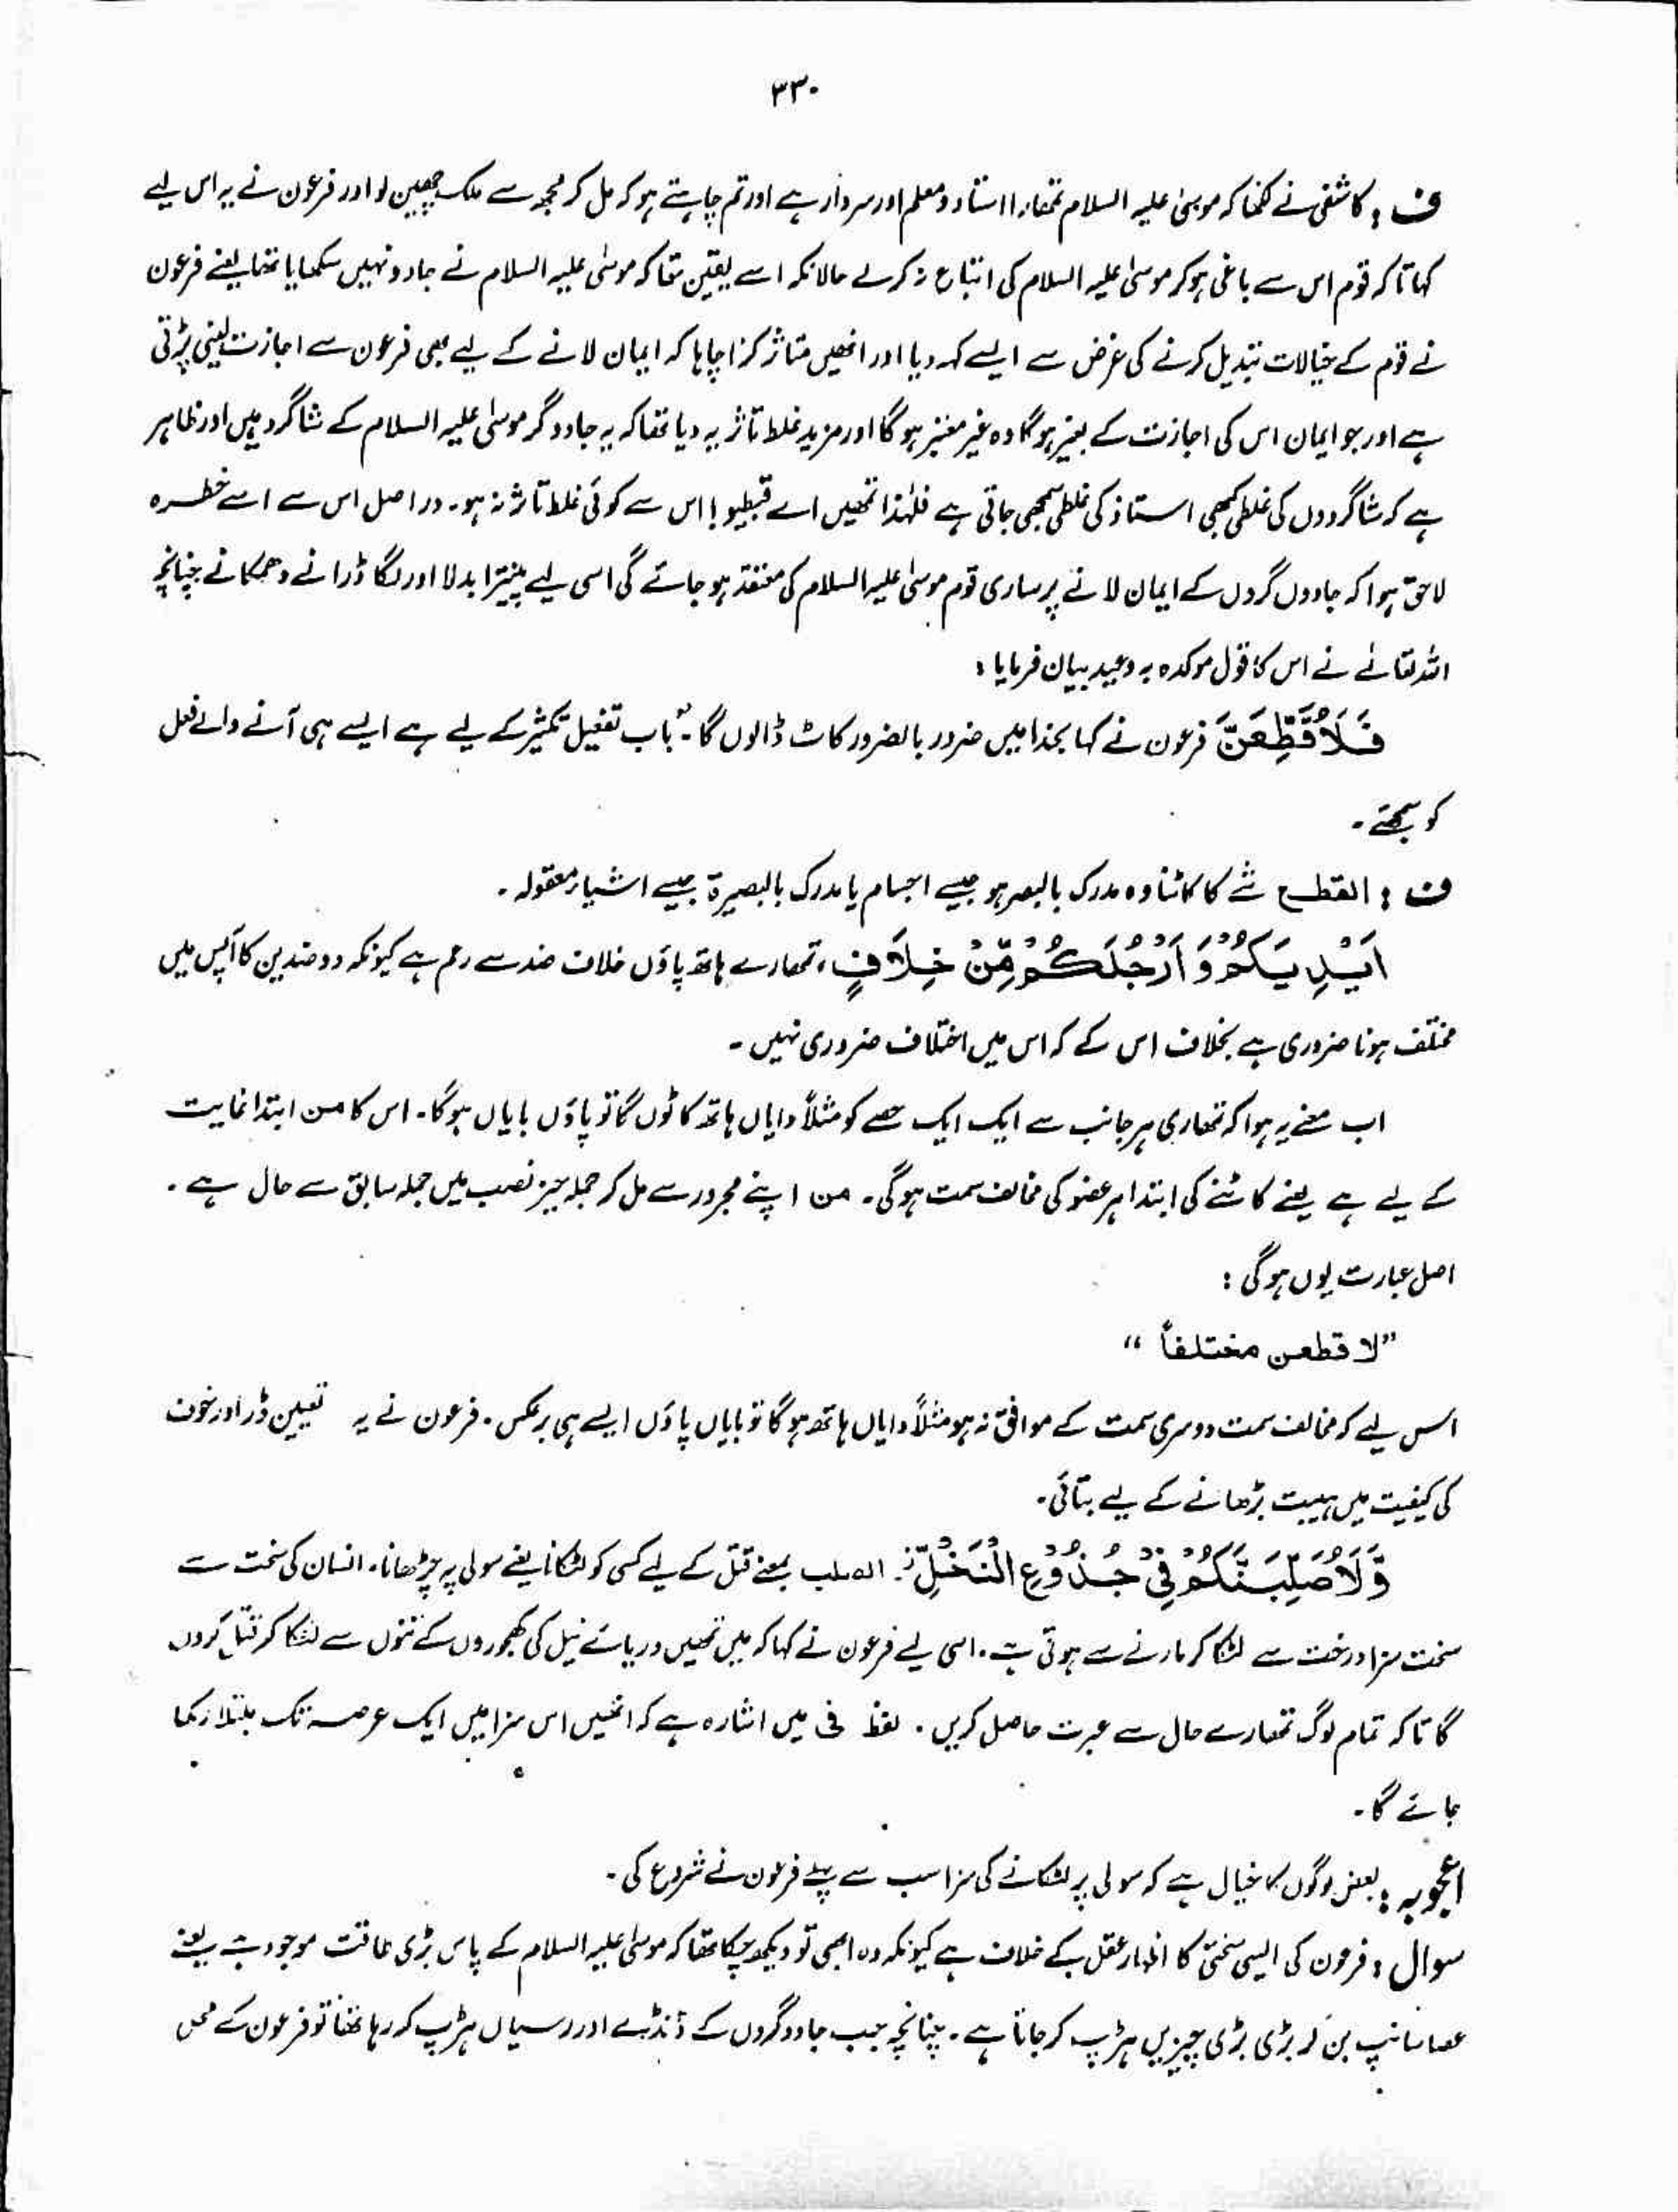 ۳۳۰
ف : کاشفی نے لکھا کہ موسیٰ علیہ السلام تمھارا استاد و معلم اور سردار ہے اور تم چاہتے ہو کہ مل کر مجھ سے ملک چھین لو اور فرعون نے یہ اس لیے
کہا تا کہ قوم اس سے باغی ہو کر موسیٰ علیہ السلام کی اتباع نہ کرلے حالانکہ اسے یقین تھا کہ موسیٰ علیہ السلام نے جادو نہیں سکھایا تھا یعنے فرعون
نے قوم کے خیالات تبدیل کرنے کی غرض سے ایسے کہہ دیا اور انھیں متاثر کرنا چاہا کہ ایمان لانے کے لیے بھی فرعون سے اجازت لینی پڑتی
ہے اور جو ایمان اس کی اجازت کے بغیر ہوگا وہ غیر معتبر ہو گا اور مزید غلط تاثر یہ دیا تھا کہ یہ جادوگر موسیٰ علیہ السلام کے شاگرد ہیں اور ظاہر
ہے کہ شاگردوں کی غلطی کبھی استاذ کی غلطی سمجھی جاتی ہے فلہٰذا تمھیں اے قبطیو! اس سے کوئی غلط تاثر نہ ہو۔ دراصل اس سے اسے خطرہ
لاحق ہوا کہ جادوں گروں کے ایمان لانے پر ساری قوم موسیٰ علیہ السلام کی معتقد ہو جائے گی اسی لیے پینترا بدلا اور لگا ڈرانے دھمکانے چنانچہ
اللہ تعالےٰ نے اس کا قول موکدہ بہ وعید بیان فرمایا :
فَلَاُقَطِّعَنَّ فرعون نے کہا بخدا میں ضرور بالضرور کاٹ ڈالوں گا۔ باب تفعیل تکثیر کے لیے ہے ایسے ہی آنے والے فعل
کو سمجھئے ۔
ف : القطع شے کا کاٹنا وہ مدرک بالبصر ہو جیسے اجسام یا مدرک بالبصیرۃ جیسے اشیاء معقولہ ۔
اَیْدِیَکُمْ وَ اَرْجُلَکُمْ مِّنْ خِلَافٍ، تمھارے ہاتھ پاؤں خلاف ضد سے اعم ہے کیونکہ دو ضدین کا آپس میں
مختلف ہونا ضروری ہے بخلاف اس کے کہ اس میں اختلاف ضروری نہیں ۔
اب معنے یہ ہوا کہ تمھاری ہر جانب سے ایک ایک حصے کو مثلاً دایاں ہاتھ کاٹوں گا تو پاؤں بایاں ہوگا۔ اس کا من ابتدا غایت
کے لیے ہے یعنے کاٹنے کی ابتدا ہر عضو کی مخالف سمت ہوگی۔ من اپنے مجرور سے مل کر جملہ حیز نصب میں جملہ سابق سے حال ہے ۔
اصل عبارت یوں ہوگی :
”لا قطعن مختلفاً “
اس لیے کہ مخالف سمت دوسری سمت کے موافق نہ ہو مثلاً دایاں ہاتھ ہوگا تو بایاں پاؤں ایسے ہی برعکس ۔ فرعون نے یہ تعیین ڈر اور خوف
کی کیفیت میں ہیبت بڑھانے کے لیے بتائی۔
وَّ لَاُصَلِّبَنَّکُمْ فِیْ جُذُوْعِ النَّخْلِ ۔ الصلب بمعنے قتل کے لیے کسی کو لٹکانا یعنے سولی پہ چڑھانا۔ انسان کی سخت سے
سخت سزا درخت سے لٹکا کر مارنے سے ہوتی ہے ۔ اسی لیے فرعون نے کہا کہ میں تمھیں دریائے نیل کی کھجوروں کے تنوں سے لٹکا کر قتل کروں
گا تاکہ تمام لوگ تمھارے حال سے عبرت حاصل کریں ۔ لفظ فی میں اشارہ ہے کہ انھیں اس سزا میں ایک عرصہ تک مبتلا رکھا
جائے گا۔
اعجوبہ : بعض لوگوں کا خیال ہے کہ سولی پر لٹکانے کی سزا سب سے پہلے فرعون نے شروع کی ۔
سوال : فرعون کی ایسی سختی کا اظہار عقل کے خلاف ہے کیونکہ وہ ابھی تو دیکھ چکا تھا کہ موسیٰ علیہ السلام کے پاس بڑی طاقت موجود ہے یعنے
عصا سانپ بن کر بڑی بڑی چیزیں ہڑپ کر جاتا ہے ۔ چنانچہ جب جادوگروں کے ڈنڈے اور رسیاں ہڑپ کر رہا تھا تو فرعون کے محل